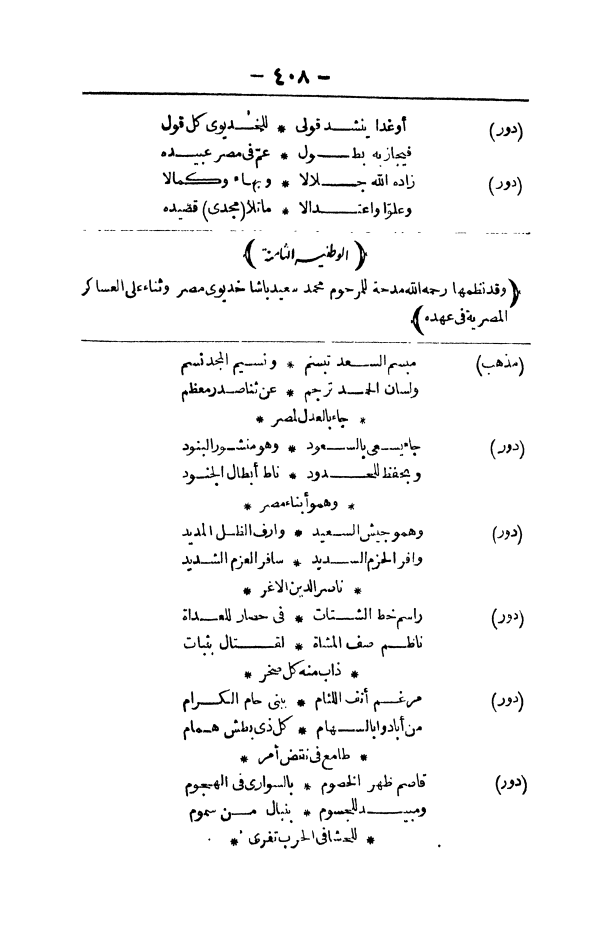 — ٤٠٨ —
(دور) أوغدا ينشد قولى * للخديوى كل قول
فيجازيه بطول * عمّ فى مصر عبيده
(دور) زاده الله جلالا * وبهاء وكمالا
وعلوّا واعتدالا * ماتلا (مجدى) قصيده
﴿ الوطنيه الثامنة ﴾
﴿ وقد نظمها رحمه الله مدحة للمرحوم محمد سعيد باشا خديوى مصر وثناء على العساكر
المصرية فى عهده ﴾
(مذهب) مبسم السعد تبسم * ونسيم المجد نسم
ولسان الحمد ترجم * عن ثنا صدر معظم
* جاء بالعدل لمصر *
(دور) جاء يسعى بالسعود * وهو منشور البنود
وبحفظ للحدود * ناط أبطال الجنود
* وهمو أبناء مصر *
(دور) وهمو جيش السعيد * وارف الظل المديد
وافر الحزم السديد * سافر العزم الشديد
* ناصر الدين الاغر *
(دور) راسم خط الشتات * فى حصار للعداة
ناظم صف المشاة * لقتال بثبات
* ذاب منه كل صخر *
(دور) مرغم أنف اللئام * ببنى حام الكرام
من أبادوا بالسهام * كل ذى بطش همام
* طامع فى نقض أمر *
(دور) قاصم ظهر الخصوم * بالسوارى فى الهجوم
ومبيد للجسوم * بنبال من سموم
* للحشا فى الحرب تفرى *